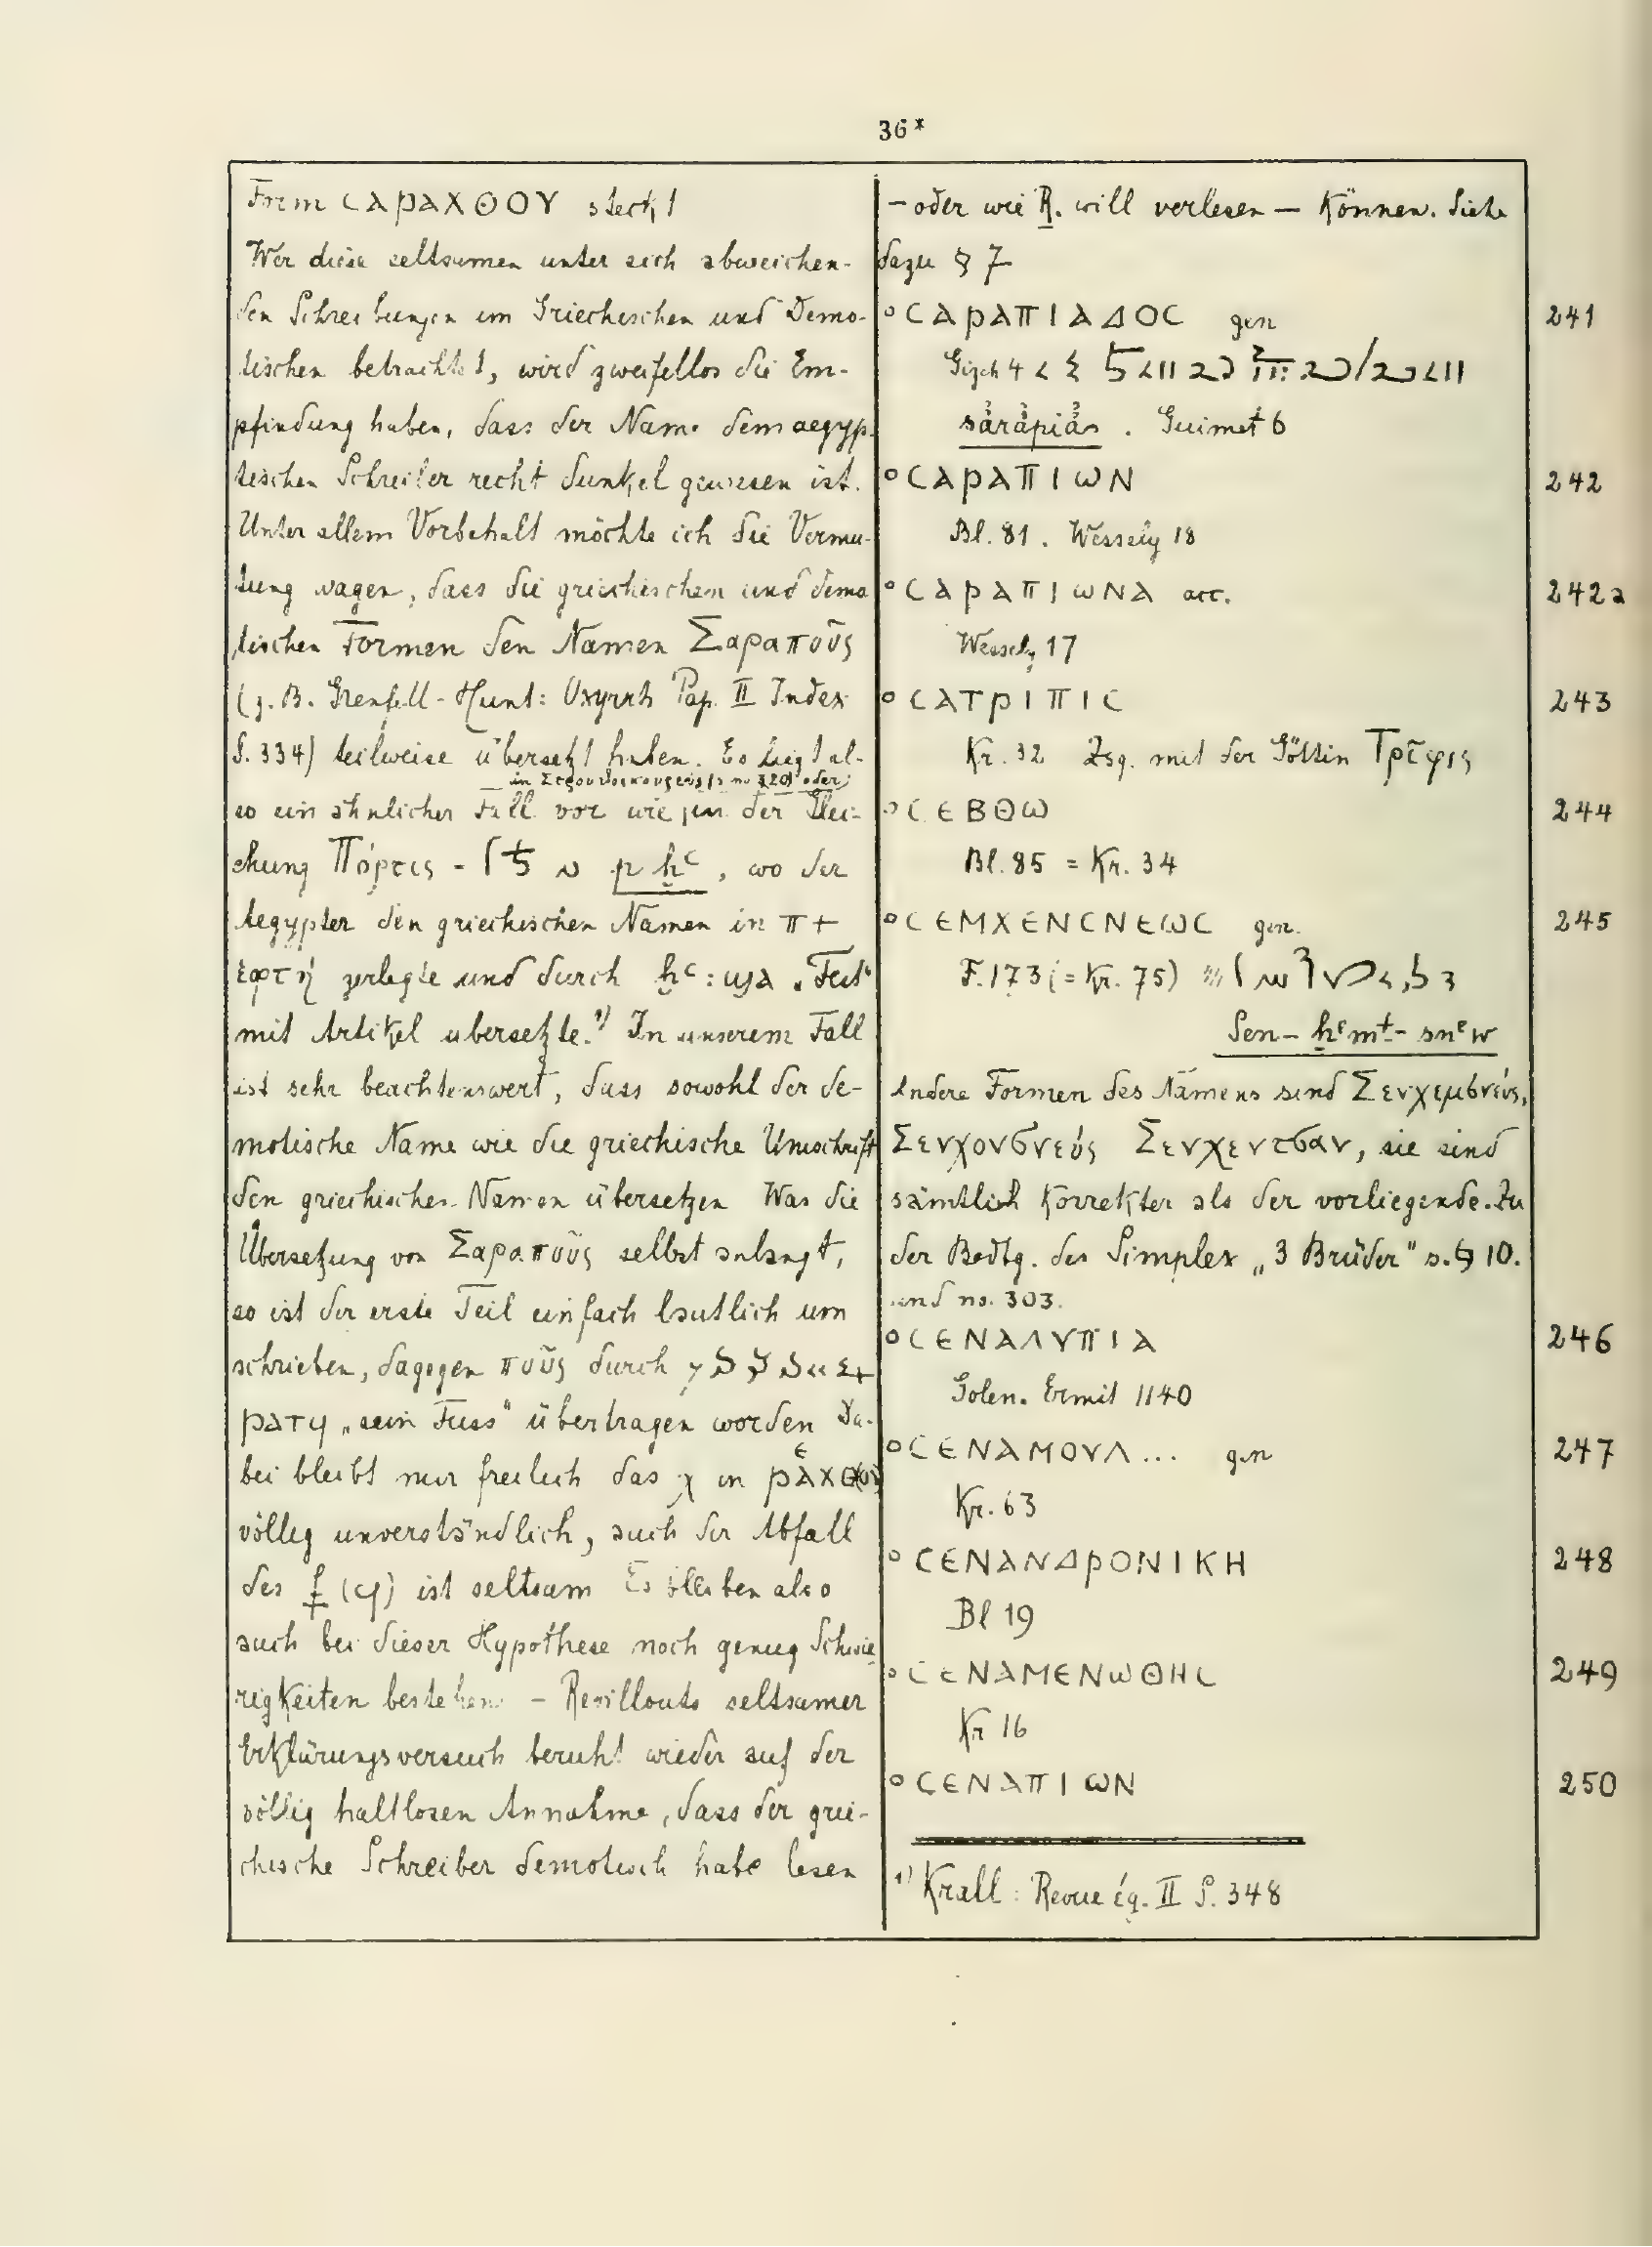 36*
Form CΑΡΑΧΘΟΥ steckt
Wer diese seltsamen unter sich abweichen-
den Schreibungen im Griechischen und Demo-
tischen betrachtet, wird zweifellos die Em-
pfindung haben, dass der Name dem aegyp-
tischen Schreiber recht dunkel gewesen ist.
Unter allem Vorbehalt möchte ich die Vermu-
tung wagen, dass die griechischen und demo
tischen Formen den Namen Σαραποῦς
(z.B. Grenfell-Hunt: Oxyrrh Pap. II Index
S. 334) teilweise übersetzt haben. Es liegt al-
oder
so ein ähnlicher Fall vor wie in der Glei-
chung Πόρτις - p ḫꜥ, wo der
Aegypter den griechischen Namen in π +
ἑορτή zerlegte und durch ḫꜥ: ϣⲁ „Fest“
mit Artikel übersetzte.¹⁾ In unserem Fall
ist sehr beachtenswert, dass sowohl der de-
motische Name wie die griechische Umschrift
den griechischen Namen übersetzen Was die
Übersetzung von Σαραποῦς selbst anlangt,
so ist der erste Teil einfach lautlich um
schrieben, dagegen ποῦς durch
ⲣⲁⲧϥ „sein Fuss“ übertragen worden Da-
bei bleibt mir freilich das χ in
völlig unverständlich, auch der Abfall
des f (ϥ) ist seltsam Es bleiben also
auch bei dieser Hypothese noch genug Schwie
rigkeiten bestehen - Revillouts seltsamer
Erklärungsversuch beruht wieder auf der
völlig haltlosen Annahme, dass der grie-
chische Schreiber demotisch habe lesen
- oder wie R. will verlesen - können. Siehe
dazu § 7
° CΑΡΑΠΙΑΔΟC gen 241
Gizeh 4
sȧrȧpiȧs . Guimet 6
° CΑΡΑΠΙωΝ 242
Bl. 81. Wessely 18
° CΑΡΑΠΙωΝΑ acc. 242a
Wessely 17
° CΑΤΡΙΠΙC 243
Kr. 32 Zsg. mit der Göttin Τρῖφις
° CΕΒΘω 244
Bl. 85 = Kr. 34
° CΕΜΧΕΝCΝΕωC gen. 245
F. 173 (= Kr. 75)
Sen-ḫᵉmt-snᵉw
Andere Formen des Namens sind Σενχεμσνεύς,
Σενχονσνεύς Σενχεντσαν, sie sind
sämtlich korrekter als der vorliegende. Zu
der Bedtg. des Simplex „3 Brüder“ s. § 10.
und no. 303.
° CΕΝΑΛΥΠΙΑ 246
Golen. Ermit 1140
° CΕΝΑΜΟΥΛ... gen 247
Kr. 63
° CΕΝΑΝΔΡΟΝΙΚΗ 248
Bl 19
° CΕΝΑΜΕΝωΘΗC 249
Kr 16
° CΕΝΑΠΙωΝ 250
¹⁾ Krall: Revue ég. II S. 348